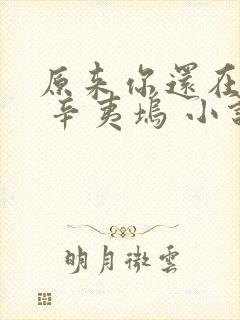 原来你還在
辛夷塢 小説
明月微雲